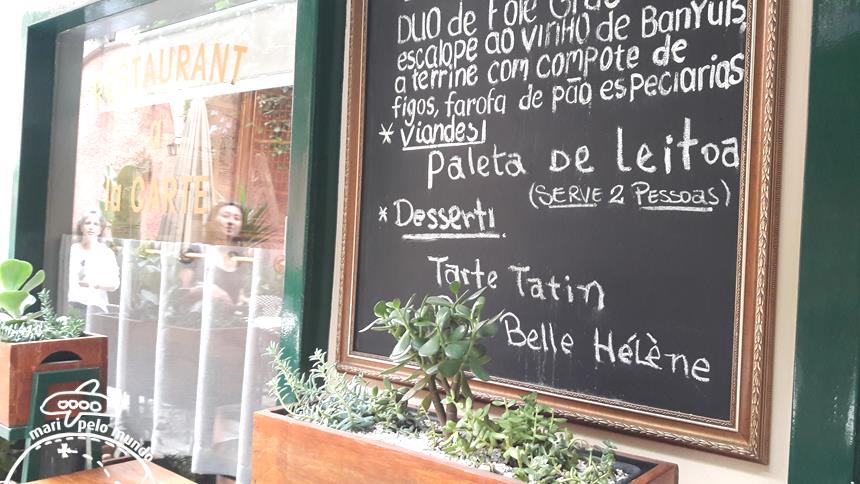 RESTAURANT
à
la CARTE
DUO de Foie Gras
escalope ao vinho de Banyuls,
a terrine com compote de
figos, farofa de pão especiarias
* Viandes!
Paleta de Leitoa
(SERVE 2 PESSOAS)
* Desserti
Tarte Tatin
Belle Hélène
mari pelo mundo